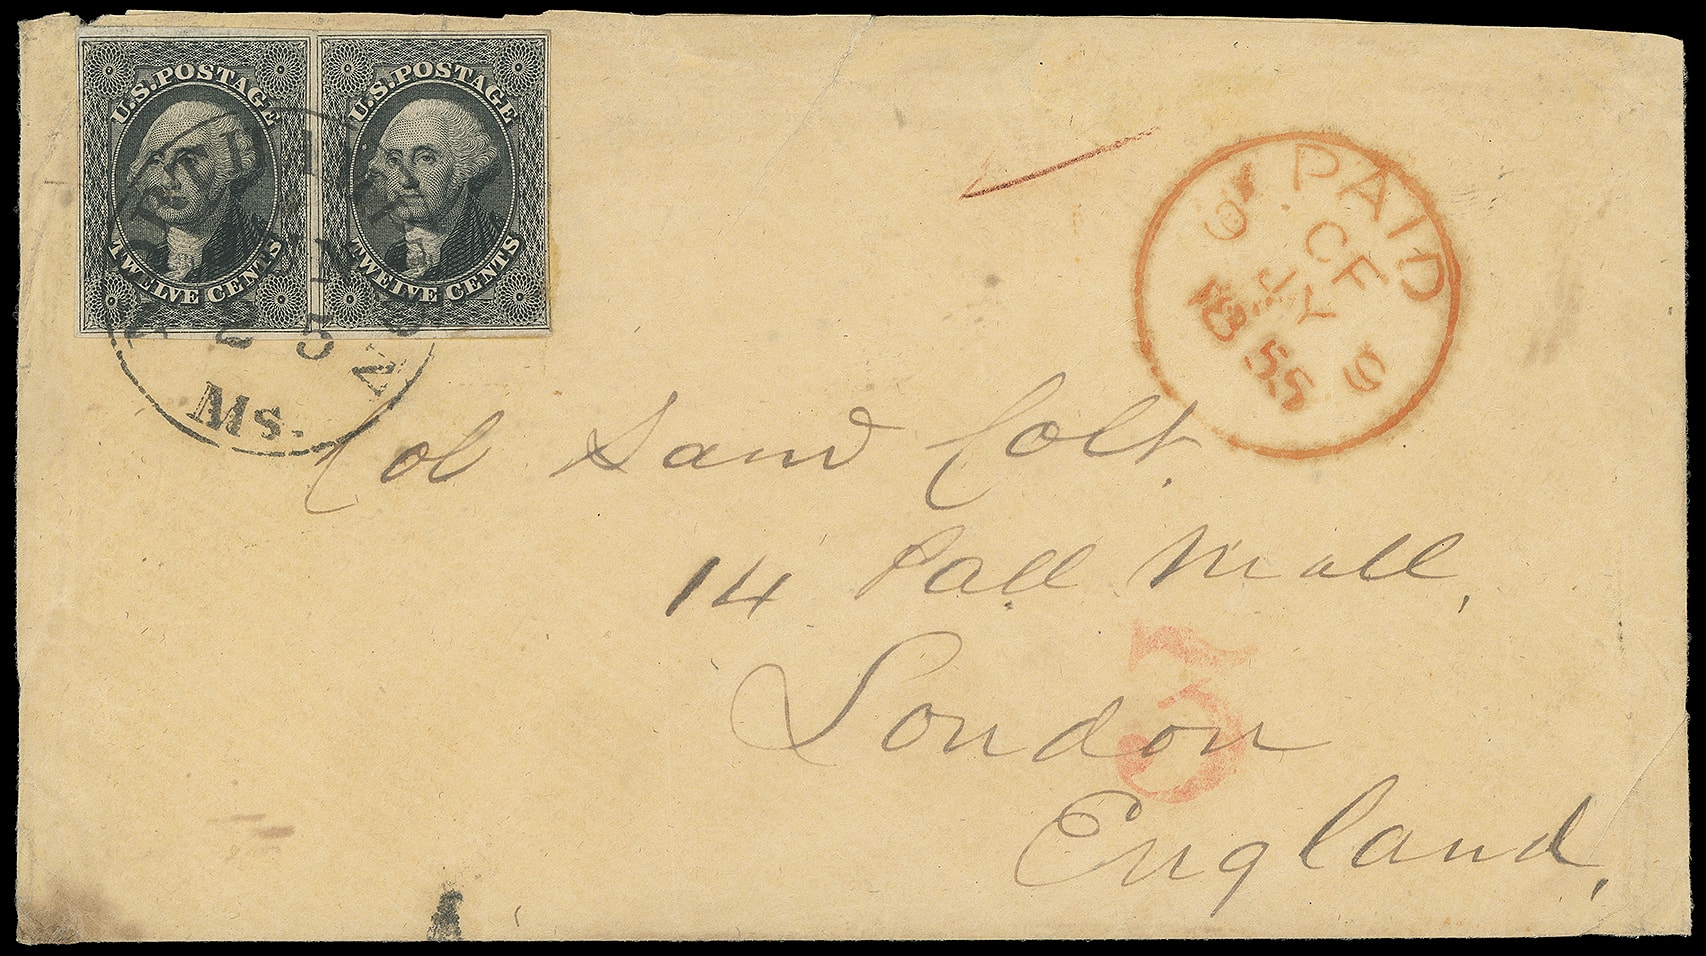 U.S. POSTAGE
TWELVE CENTS
U.S. POSTAGE
TWELVE CENTS
25
Ms.
PAID
CF
JY 9
1855
Col Saml Colt.
14 Pall Mall,
London
England,
5